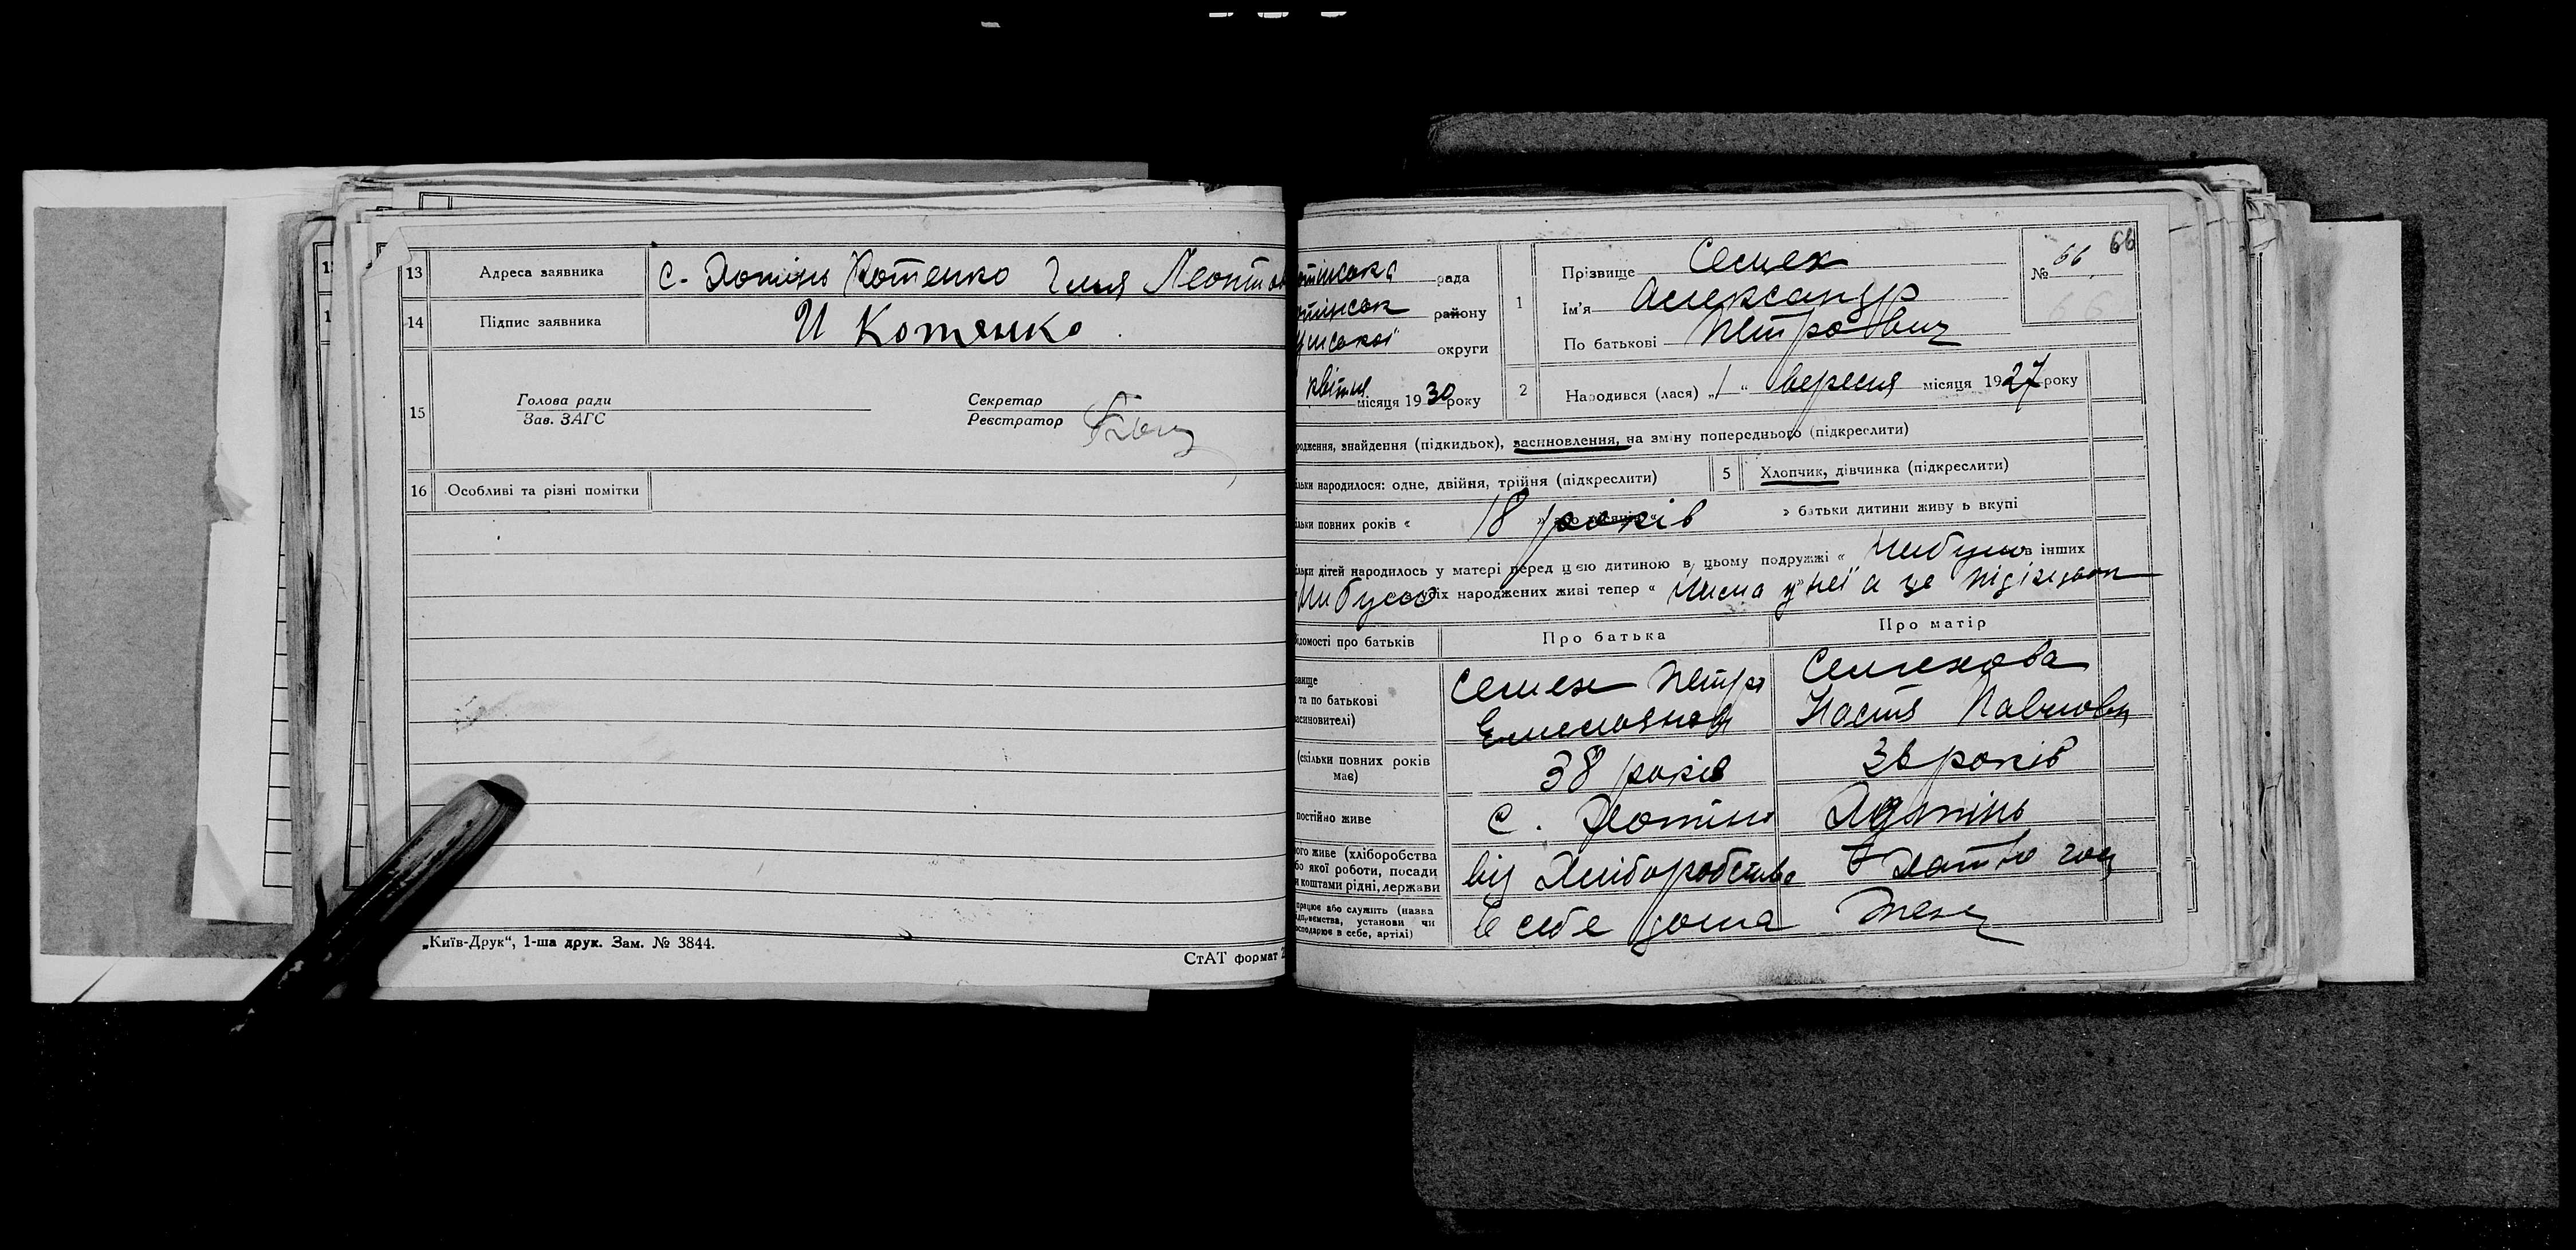 13 Адреса заявника С. Хотінь Котенко Ілля Леонтов
14 Підпис заявника И Котенко
15 Голова ради Зав. ЗАГС Секретар Реєстратор
16 Особливі та різні помітки
„Київ-Друк“, 1-ша друк. Зам. № 3844.
СтАТ формат
отінська рада
отінськ району
умської округи
квітня місяця 1930 року
1 Прізвище Семех
Ім'я Александр
По батькові Петрович
№ 66 66
2 Народився (лася) „1“ вересня місяця 1927 року
родження, знайдення (підкидьок), всиновлення, на зміну попереднього (підкреслити)
льки народилося: одне, двійня, трійня (підкреслити)
5 Хлопчик, дівчинка (підкреслити)
льки повних років « 18 років » батьки дитини живу ь вкупі
льки дітей народилось у матері перед цією дитиною в цьому подружжі « Небуло в інших
Небуло їх народжених живі тепер « Нема у неї а це підкидьок
ідомості про батьків Про батька Про матір
звище
та по батькові
асиновителі)
Семех Петро
Емельянов
Семехова
Настя Павловн
(скільки повних років має) 38 років 36 років
постійно живе с. Хотінь Хотінь
ого живе (хліборобства
бо якої роботи, посади
и коштами рідні, держави
від Хліборобства
працює або служить (назва
ідприємства, установи чи
осподарює в себе, артілі)
в себе дома